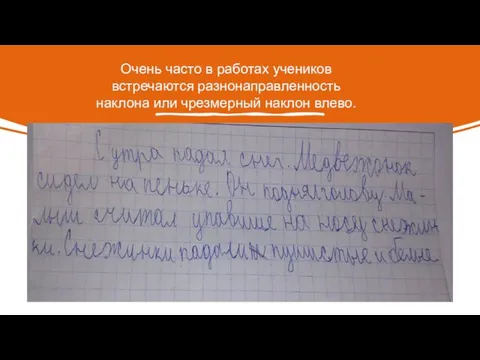 Очень часто в работах учеников
встречаются разнонаправленность
наклона или чрезмерный наклон влево.
С утра падал снег. Медвежонок
сидел на пеньке. Он поднял голову. Ма-
лыш считал упавшие на носу снежин
ки. Снежинки падали пушистые и белые